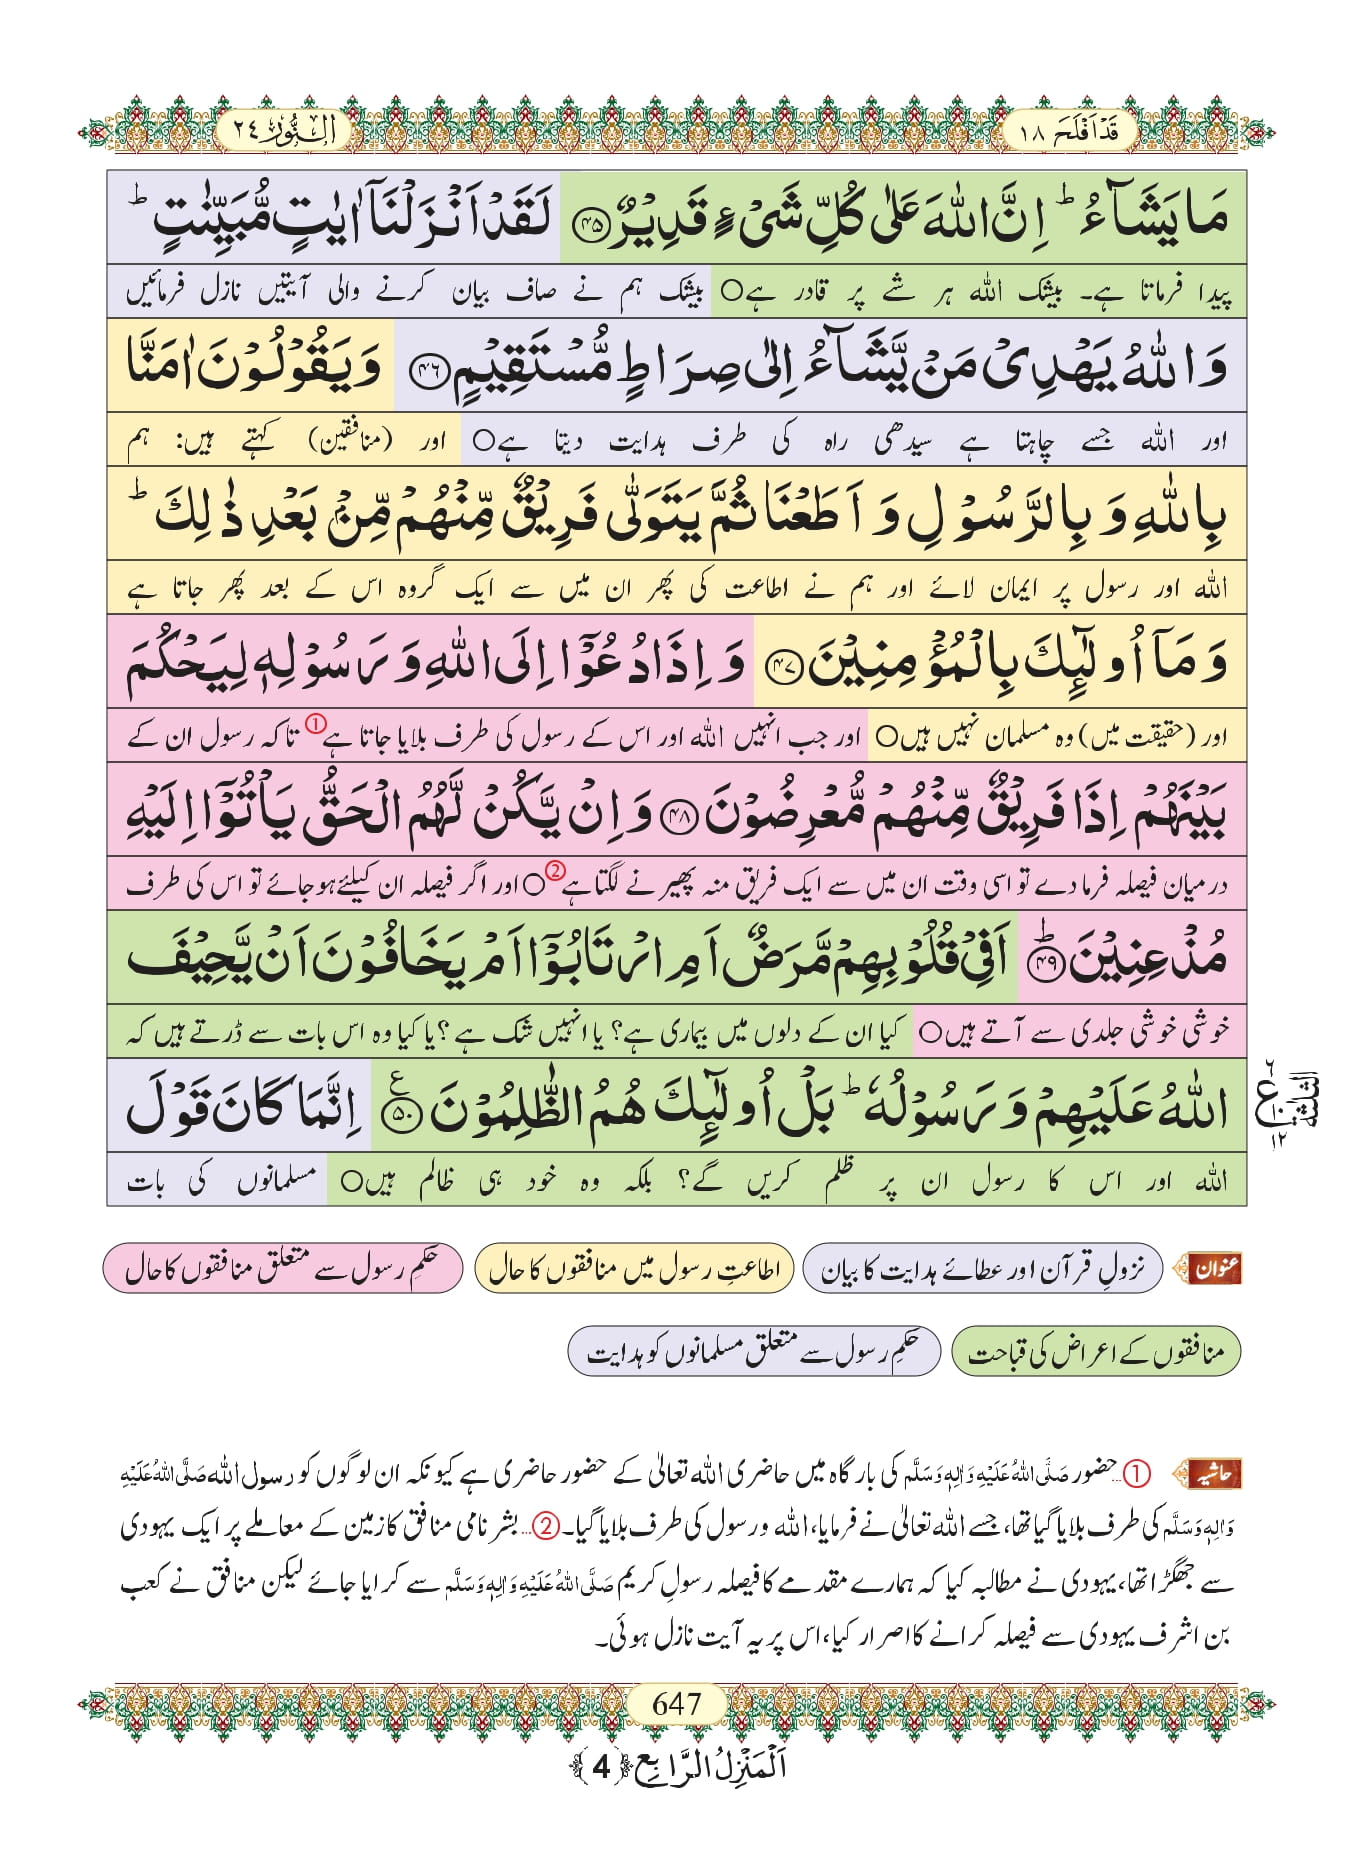 قَدْ اَفْلَحَ ١٨
اَلنُّوْر ٢٤
مَا یَشَآءُ ؕ اِنَّ اللّٰهَ عَلٰى كُلِّ شَیْءٍ قَدِیْرٌ ﴿۴۵﴾ لَقَدْ اَنْزَلْنَاۤ اٰیٰتٍ مُّبَیِّنٰتٍ ؕ
پیدا فرماتا ہے۔ بیشک اللہ ہر شے پر قادر ہے○ بیشک ہم نے صاف بیان کرنے والی آیتیں نازل فرمائیں
وَ اللّٰهُ یَهْدِیْ مَنْ یَّشَآءُ اِلٰى صِرَاطٍ مُّسْتَقِیْمٍ ﴿۴۶﴾ وَ یَقُوْلُوْنَ اٰمَنَّا
اور اللہ جسے چاہتا ہے سیدھی راہ کی طرف ہدایت دیتا ہے○ اور (منافقین) کہتے ہیں: ہم
بِاللّٰهِ وَ بِالرَّسُوْلِ وَ اَطَعْنَا ثُمَّ یَتَوَلّٰى فَرِیْقٌ مِّنْهُمْ مِّنْۢ بَعْدِ ذٰلِكَ ؕ
اللہ اور رسول پر ایمان لائے اور ہم نے اطاعت کی پھر ان میں سے ایک گروہ اس کے بعد پھر جاتا ہے
وَ مَاۤ اُولٰٓىٕكَ بِالْمُؤْمِنِیْنَ ﴿۴۷﴾ وَ اِذَا دُعُوْۤا اِلَى اللّٰهِ وَ رَسُوْلِهٖ لِیَحْكُمَ
اور (حقیقت میں) وہ مسلمان نہیں ہیں○ اور جب انہیں اللہ اور اس کے رسول کی طرف بلایا جاتا ہے① تاکہ رسول ان کے
بَیْنَهُمْ اِذَا فَرِیْقٌ مِّنْهُمْ مُّعْرِضُوْنَ ﴿۴۸﴾ وَ اِنْ یَّكُنْ لَّهُمُ الْحَقُّ یَاْتُوْۤا اِلَیْهِ
درمیان فیصلہ فرما دے تو اسی وقت ان میں سے ایک فریق منہ پھیرنے لگتا ہے②○ اور اگر فیصلہ ان کیلئے ہو جائے تو اس کی طرف
مُذْعِنِیْنَ ﴿۴۹﴾ؕ اَفِیْ قُلُوْبِهِمْ مَّرَضٌ اَمِ ارْتَابُوْۤا اَمْ یَخَافُوْنَ اَنْ یَّحِیْفَ
خوشی خوشی جلدی سے آتے ہیں○ کیا ان کے دلوں میں بیماری ہے؟ یا انہیں شک ہے؟ یا کیا وہ اس بات سے ڈرتے ہیں کہ
اللّٰهُ عَلَیْهِمْ وَ رَسُوْلُهٗ ؕ بَلْ اُولٰٓىٕكَ هُمُ الظّٰلِمُوْنَ ﴿۵۰﴾ع اِنَّمَا كَانَ قَوْلَ
٦ ع ١٠ ١٢ الثلثة
اللہ اور اس کا رسول ان پر ظلم کریں گے؟ بلکہ وہ خود ہی ظالم ہیں○ مسلمانوں کی بات
عنوان نزولِ قرآن اور عطائے ہدایت کا بیان اطاعتِ رسول میں منافقوں کا حال حکمِ رسول سے متعلق منافقوں کا حال
منافقوں کے اعراض کی قباحت حکمِ رسول سے متعلق مسلمانوں کو ہدایت
حاشیہ ①...حضور صَلَّی اللہُ عَلَیْہِ وَاٰلِہٖ وَسَلَّم کی بارگاہ میں حاضری اللہ تعالیٰ کے حضور حاضری ہے کیونکہ ان لوگوں کو رسول اللہ صَلَّی اللہُ عَلَیْہِ
وَاٰلِہٖ وَسَلَّم کی طرف بلایا گیا تھا، جسے اللہ تعالیٰ نے فرمایا، اللہ و رسول کی طرف بلایا گیا۔ ②...بشر نامی منافق کا زمین کے معاملے پر ایک یہودی
سے جھگڑا تھا، یہودی نے مطالبہ کیا کہ ہمارے مقدمے کا فیصلہ رسولِ کریم صَلَّی اللہُ عَلَیْہِ وَاٰلِہٖ وَسَلَّم سے کرایا جائے لیکن منافق نے کعب
بن اشرف یہودی سے فیصلہ کرانے کا اصرار کیا، اس پر یہ آیت نازل ہوئی۔
647
اَلْمَنْزِلُ الرَّابِعُ ﴿4﴾